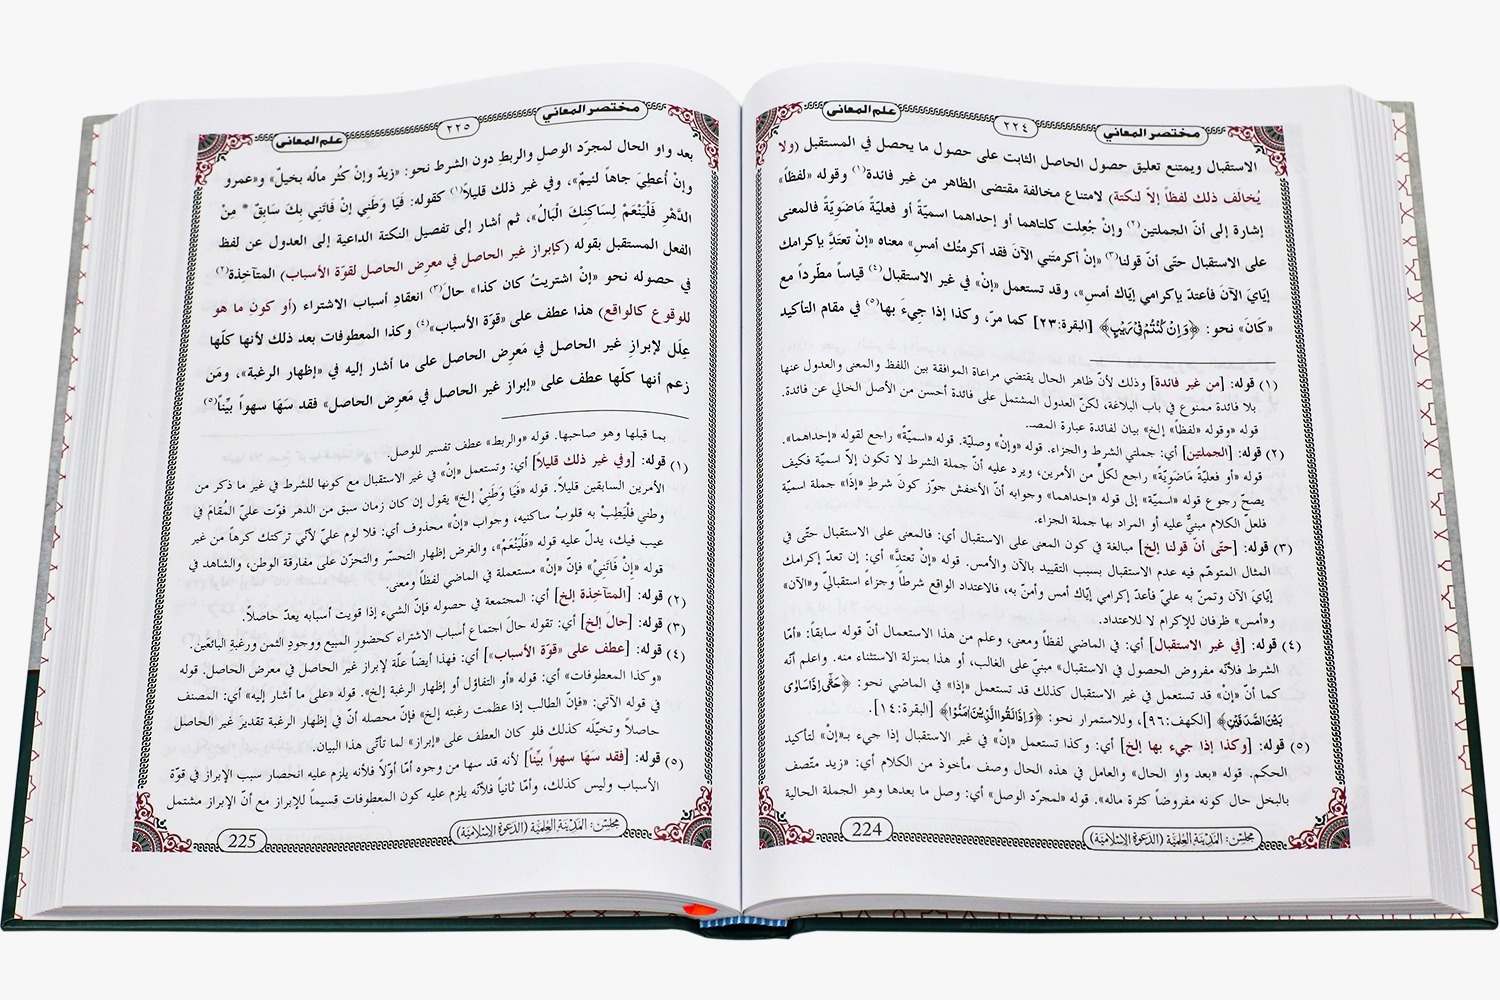 مختصر المعاني
٢٢٤
علم المعانى
الاستقبال ويمتنع تعليق حصول الحاصل الثابت على حصول ما يحصل في المستقبل (ولا
يُخالَف ذلك لفظاً إلاّ لنكتة) لامتناع مخالفة مقتضى الظاهر من غير فائدة(١) وقوله «لفظاً»
إشارة إلى أنّ الجملتين(٢) وإنْ جُعِلت كلتاهما أو إحداهما اسميّة أو فعليّة مَاضَويّة فالمعنى
على الاستقبال حتّى أنّ قولنا(٣) «إنْ أكرمتَني الآنَ فقد أكرمتُك أمسِ» معناه «إنْ تعتدَّ بإكرامك
إيّايَ الآنَ فأعتدّ بإكرامي إيّاك أمسِ»، وقد تستعمل «إنْ» في غير الاستقبال(٤) قياساً مطّرداً مع
«كَانَ» نحو: ﴿وَإِنْ كُنْتُمْ فِيْ رَيْبٍ﴾ [البقرة:٢٣] كما مرّ، وكذا إذا جِيءَ بها(٥) في مقام التأكيد
(١) قوله: [من غير فائدة] وذلك لأنّ ظاهر الحال يقتضي مراعاة الموافقة بين اللفظ والمعنى والعدول عنها
بلا فائدة ممنوع في باب البلاغة، لكنّ العدول المشتمل على فائدة أحسن من الأصل الخالي عن فائدة.
قوله «وقوله «لفظاً» إلخ» بيان لفائدة عبارة المصـ
(٢) قوله: [الجملتين] أي: جملتي الشرط والجزاء. قوله «وإنْ» وصليّة. قوله «اسميّة» راجع لقوله «إحداهما».
قوله «أو فعليّة مَاضَويّة» راجع لكلٍّ من الأمرين، ويرد عليه أنّ جملة الشرط لا تكون إلاّ اسميّة فكيف
يصحّ رجوع قوله «اسميّة» إلى قوله «إحداهما» وجوابه أنّ الأخفش جوّز كون شرطِ «إذا» جملة اسميّة
فلعلّ الكلام مبنيٌّ عليه أو المراد بها جملة الجزاء.
(٣) قوله: [حتّى أنّ قولنا إلخ] مبالغة في كون المعنى على الاستقبال أي: فالمعنى على الاستقبال حتّى في
المثال المتوهّم فيه عدم الاستقبال بسبب التقييد بالآن والأمس. قوله «إنْ تعتدَّ» أي: إن تعدّ إكرامك
إيّايَ الآن وتمنّ به عليّ فأعدّ إكرامي إيّاك أمس وأمنّ به، فالاعتداد الواقع شرطاً وجزاءً استقبالي و«الآن»
و«أمس» ظرفان للإكرام لا للاعتداد.
(٤) قوله: [في غير الاستقبال] أي: في الماضي لفظاً ومعنى، وعلم من هذا الاستعمال أنّ قوله سابقاً: «أمّا
الشرط فلأنّه مفروض الحصول في الاستقبال» مبنيّ على الغالب، أو هذا بمنزلة الاستثناء منه. واعلم أنّه
كما أنّ «إنْ» قد تستعمل في غير الاستقبال كذلك قد تستعمل «إذا» في الماضي نحو: ﴿حَتّٰى اِذَا سَاوٰى
بَيْنَ الصَّدَفَيْنِ﴾ [الكهف:٩٦]، وللاستمرار نحو: ﴿وَاِذَا لَقُوا الَّذِيْنَ اٰمَنُوْا﴾ [البقرة:١٤].
(٥) قوله: [وكذا إذا جيء بها إلخ] أي: وكذا تستعمل «إنْ» في غير الاستقبال إذا جيء بـ«إنْ» لتأكيد
الحكم. قوله «بعد واو الحال» والعامل في هذه الحال وصف مأخوذ من الكلام أي: «زيد متّصف
بالبخل حال كونه مفروضاً كثرة ماله». قوله «لمجرّد الوصل» أي: وصل ما بعدها وهو الجملة الحالية
مجلس: المدينة العلمية (الدعوة الإسلامية)
224
مختصر المعاني
٢٢٥
علم المعانى
بعد واو الحال لمجرّد الوصلِ والربطِ دون الشرط نحو: «زيدٌ وإنْ كثُر مالُه بخيلٌ» و«عمرو
وإنْ أُعطِيَ جاهاً لئيمٌ»، وفي غير ذلك قليلاً(١) كقوله: فَيَا وَطَنِي إنْ فَاتَنِي بكَ سَابِقٌ * مِنْ
الدَّهْرِ فَلْيَنْعَمْ لِسَاكِنِكَ الْبَالُ»، ثم أشار إلى تفصيل النكتة الداعية إلى العدول عن لفظ
الفعل المستقبل بقوله (كإبراز غير الحاصل في معرِض الحاصل لقوّة الأسباب) المتآخِذة(٢)
في حصوله نحو «إنْ اشتريتُ كان كذا» حالَ(٣) انعقادِ أسباب الاشتراء (أو كونِ ما هو
للوقوع كالواقع) هذا عطف على «قوّة الأسباب»(٤) وكذا المعطوفات بعد ذلك لأنها كلّها
عِلَل لإبرازِ غير الحاصل في مَعَرِض الحاصل على ما أشار إليه في «إظهار الرغبة»، ومَن
زعم أنها كلّها عطف على «إبراز غير الحاصل في مَعَرِض الحاصل» فقد سَهَا سهواً بيِّناً(٥)
بما قبلها وهو صاحبها. قوله «والربط» عطف تفسير للوصل.
(١) قوله: [وفي غير ذلك قليلاً] أي: وتستعمل «إنْ» في غير الاستقبال مع كونها للشرط في غير ما ذكر من
الأمرين السابقين قليلاً. قوله «فَيَا وَطَنِيْ إلخ» يقول إن كان زمان سبق من الدهر فوّت عليّ المُقامَ في
وطني فلْيَطِبْ به قلوبُ ساكنيه، وجواب «إنْ» محذوف أي: فلا لوم عليّ لأنّي تركتك كرهاً من غير
عيب فيك، يدلّ عليه قوله «فَلْيَنْعَمْ»، والغرض إظهار التحسّر والتحزّن على مفارقة الوطن، والشاهد في
قوله «إنْ فَاتَنِيْ» فإنّ «إنْ» مستعملة في الماضي لفظاً ومعنى.
(٢) قوله: [المتآخِذة إلخ] أي: المجتمعة في حصوله فإنّ الشيء إذا قويت أسبابه يعدّ حاصلاً.
(٣) قوله: [حالَ إلخ] أي: تقوله حالَ اجتماع أسباب الاشتراء كحضور المبيع ووجودِ الثمن ورغبةِ البائعين.
(٤) قوله: [عطف على «قوّة الأسباب»] أي: فهذا أيضاً علّة لإبراز غير الحاصل في معرض الحاصل. قوله
«وكذا المعطوفات» أي: قوله «أو التفاؤل أو إظهار الرغبة إلخ». قوله «على ما أشار إليه» أي: المصنف
في قوله الآتي: «فإنّ الطالب إذا عظمت رغبته إلخ» فإنّ محصله أنّ في إظهار الرغبة تقديرَ غير الحاصل
حاصلاً وتخيّله كذلك فلو كان العطف على «إبراز» لما تأتّى هذا البيان.
(٥) قوله: [فقد سَهَا سهواً بيِّناً] لأنه قد سها من وجوه أمّا أوّلاً فلأنه يلزم عليه انحصار سبب الإبراز في قوّة
الأسباب وليس كذلك، وأمّا ثانياً فلأنّه يلزم عليه كون المعطوفات قسيماً للإبراز مع أنّ الإبراز مشتمل
مجلس: المدينة العلمية (الدعوة الإسلامية)
225